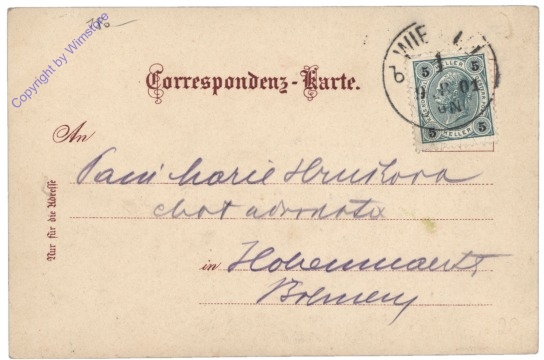 Copyright by Wimstore
WIE
1
01
5 5
HELLER
5 5
Correspondenz-Karte.
An
Paní Marie Hruškova
chot advokata
in Hohenmauth
Böhmen
Nur für die Adresse